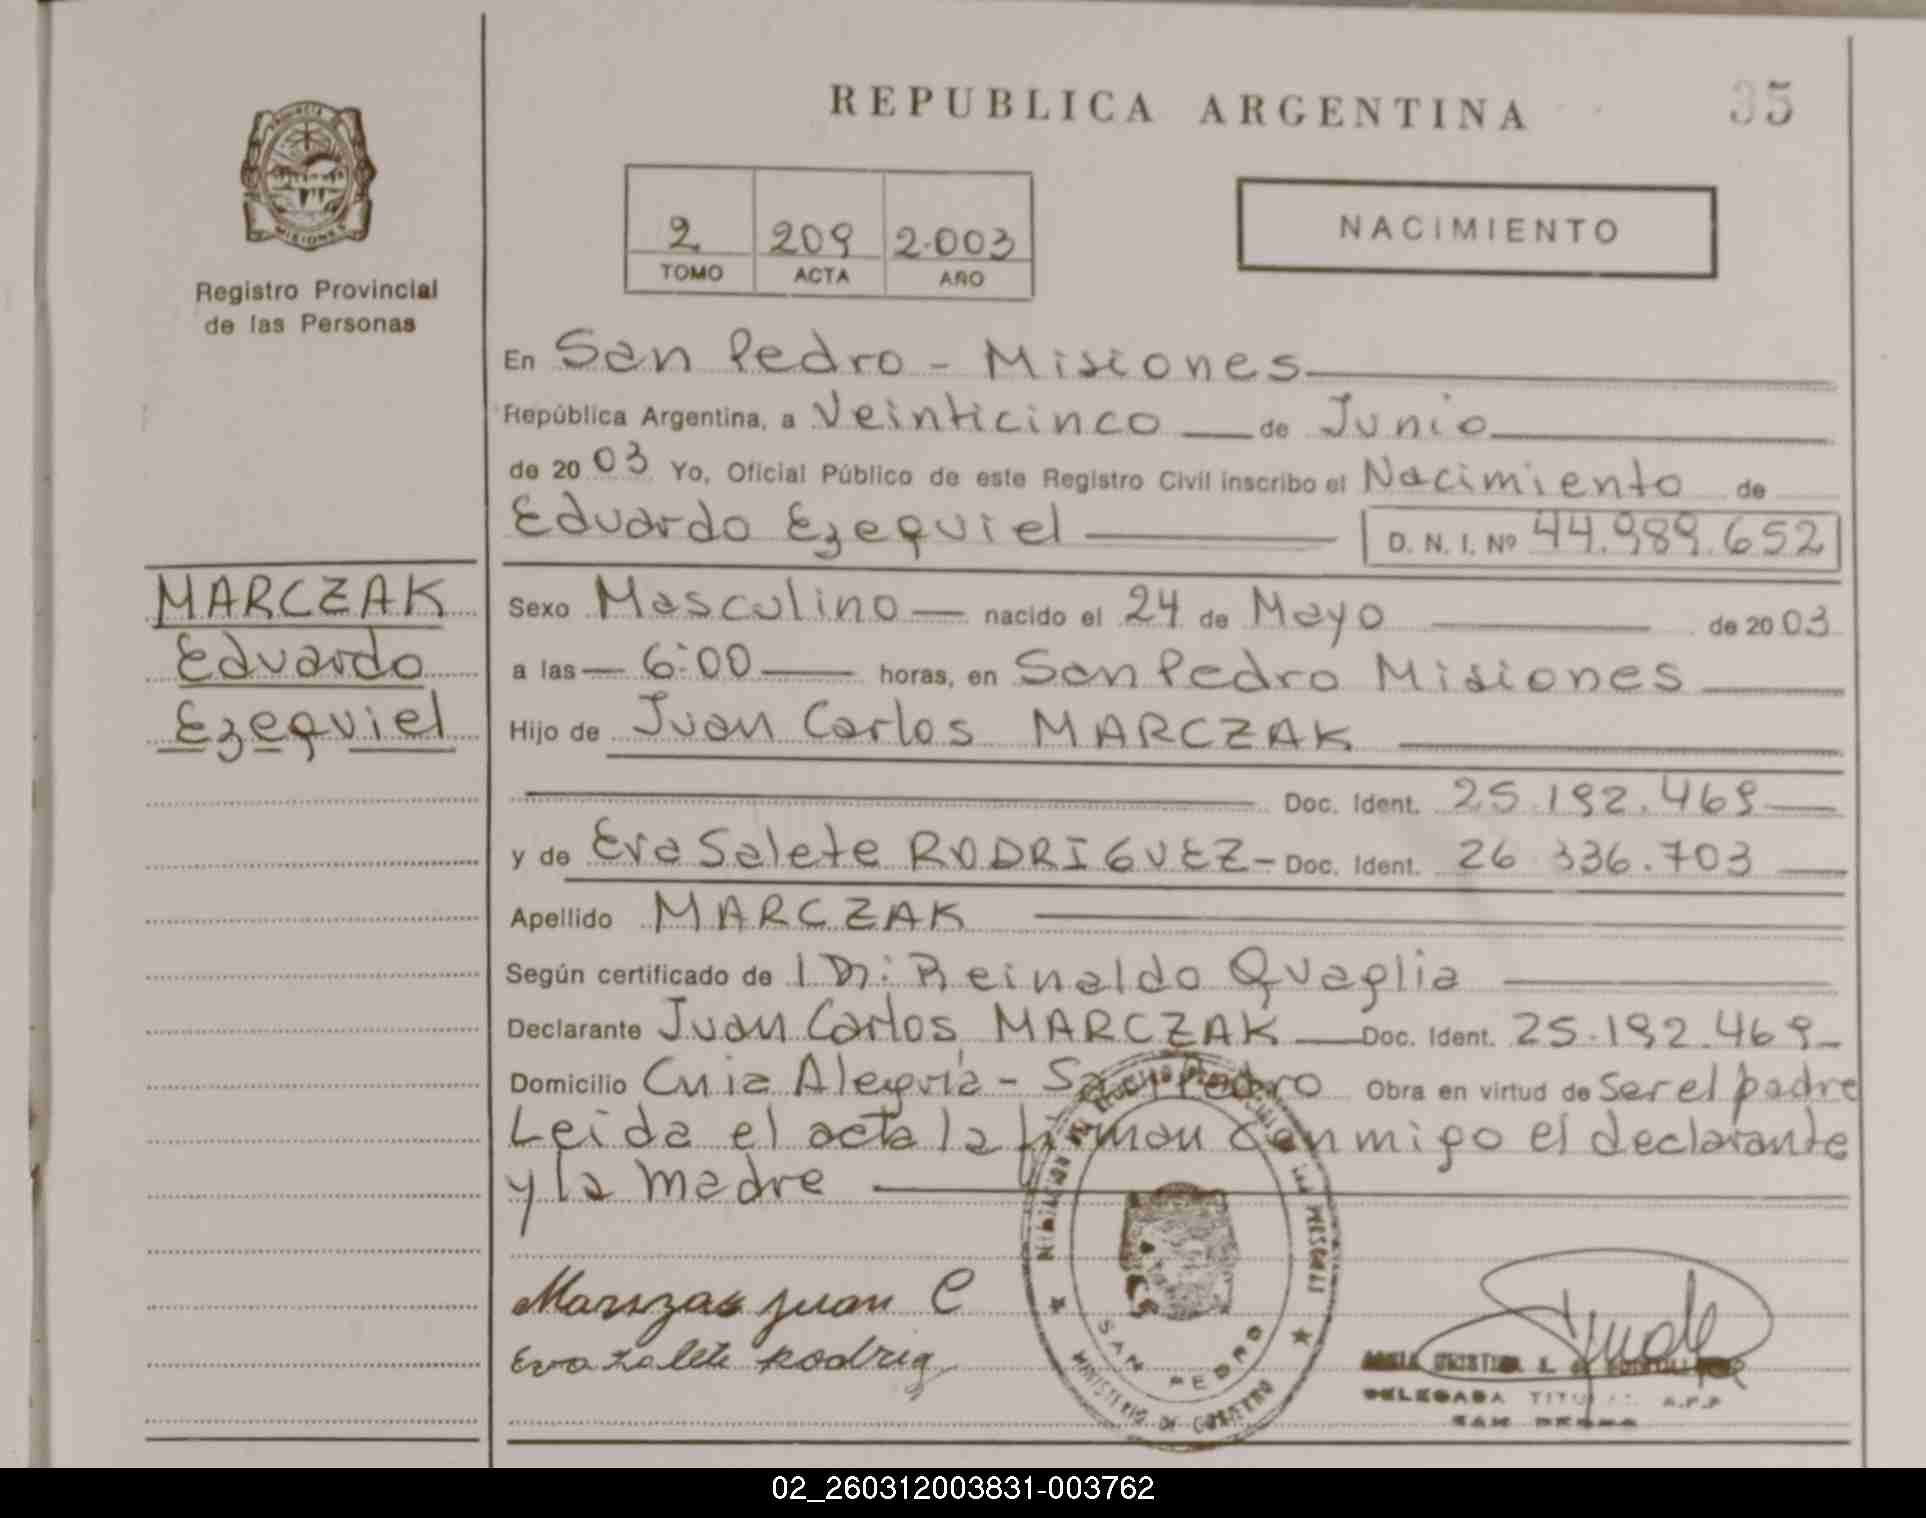 REPUBLICA ARGENTINA
35
PROVINCIA
MISIONES
Registro Provincial
de las Personas
2 209 2.003
TOMO ACTA AÑO
NACIMIENTO
En San Pedro - Misiones
República Argentina, a Veinticinco de Junio
de 2003 Yo, Oficial Público de este Registro Civil inscribo el Nacimiento de
Eduardo Ezequiel D. N. I. Nº 44.989.652
MARCZAK
Eduardo
Ezequiel
Sexo Masculino nacido el 24 de Mayo de 2003
a las 6:00 horas, en San Pedro Misiones
Hijo de Juan Carlos MARCZAK
Doc. Ident. 25.192.469
y de Eva Salete RODRIGUEZ - Doc. Ident. 26 336.703
Apellido MARCZAK
Según certificado de Dr: Reinaldo Quaglia
Declarante Juan Carlos MARCZAK Doc. Ident. 25.192.469
Domicilio Cuia Alegría - San Pedro Obra en virtud de Ser el padre
Leida el acta la firman conmigo el declarante
y la madre
juan C
Eva Salete Rodrig
SAN PEDRO
MINISTERIO DE GOBIERNO
DELEGADA TITULAR
SAN PEDRO
02_260312003831-003762